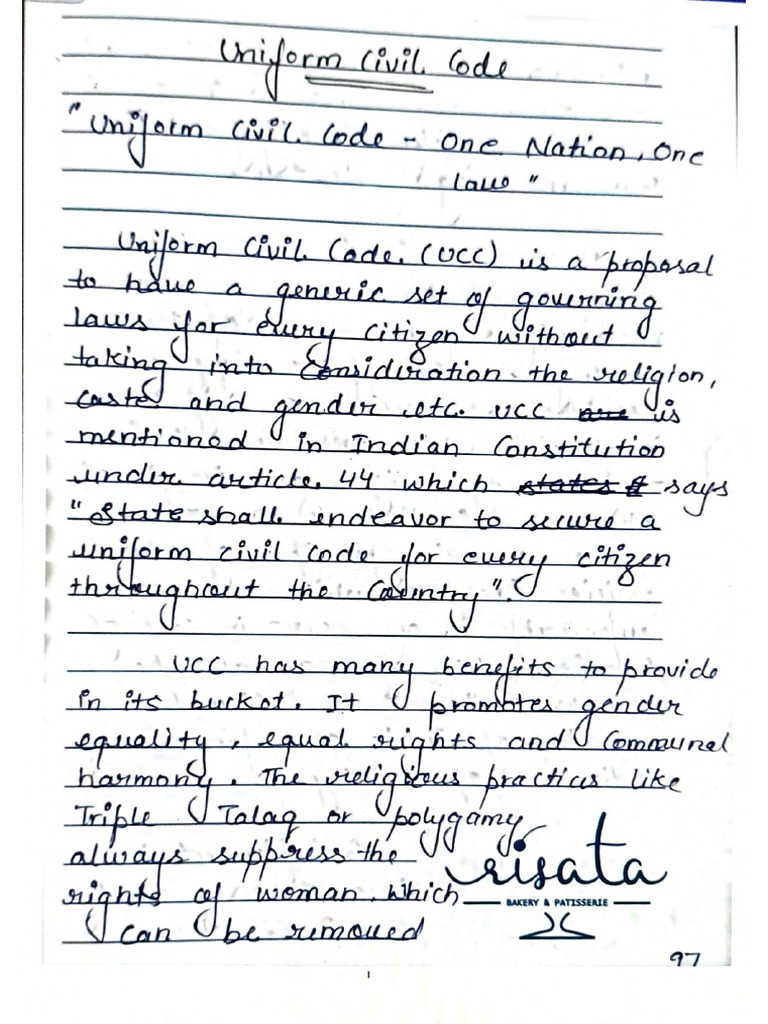 Uniform Civil Code
"Uniform Civil Code - One Nation, One
Law"
Uniform Civil Code. (UCC) is a proposal
to have a generic set of governing
laws for every citizen without
taking into Consideration the religion,
caste and gender etc. UCC are is
mentioned in Indian Constitution
under article. 44 which states says
"State shall endeavor to secure a
uniform civil code for every citizen
throughout the Country".
UCC has many benefits to provide
in its bucket. It promotes gender
equality, equal rights and Communal
harmony. The religious practices like
Triple Talaq or polygamy
always suppress the
rights of woman. which
can be removed
risata
BAKERY & PATISSERIE
97
1